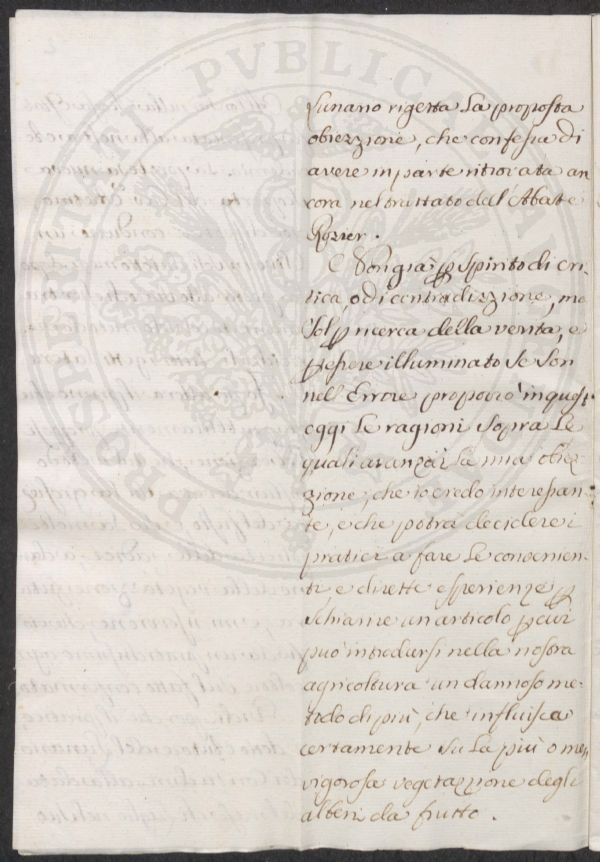 PROSPERITATI PVBLICAE AVGENDAE
Lunario rigetta La proposta
obiezzione, che confessa di
avere in parte ritrovata an
cora nel trattato dell' Abate
Rozier.
E Non già p spirito di cri
tica, o di contradizzione, ma
sol p ricerca della verità, e
p essere illuminato se son
nell' Errore proporrò in quest'
oggi Le ragioni sopra Le
quali avanzai La mia obiez
zione, che io credo interessan
te, e che potrà decidere i
pratici a fare Le convenien
ti e dirette esperienze p
schiarire un articolo p cui
può introdursi nella nostra
agricoltura un dannoso me
todo di più, che influisca
certamente su La più o men
vigorosa vegetazzione degli
alberi da frutto.